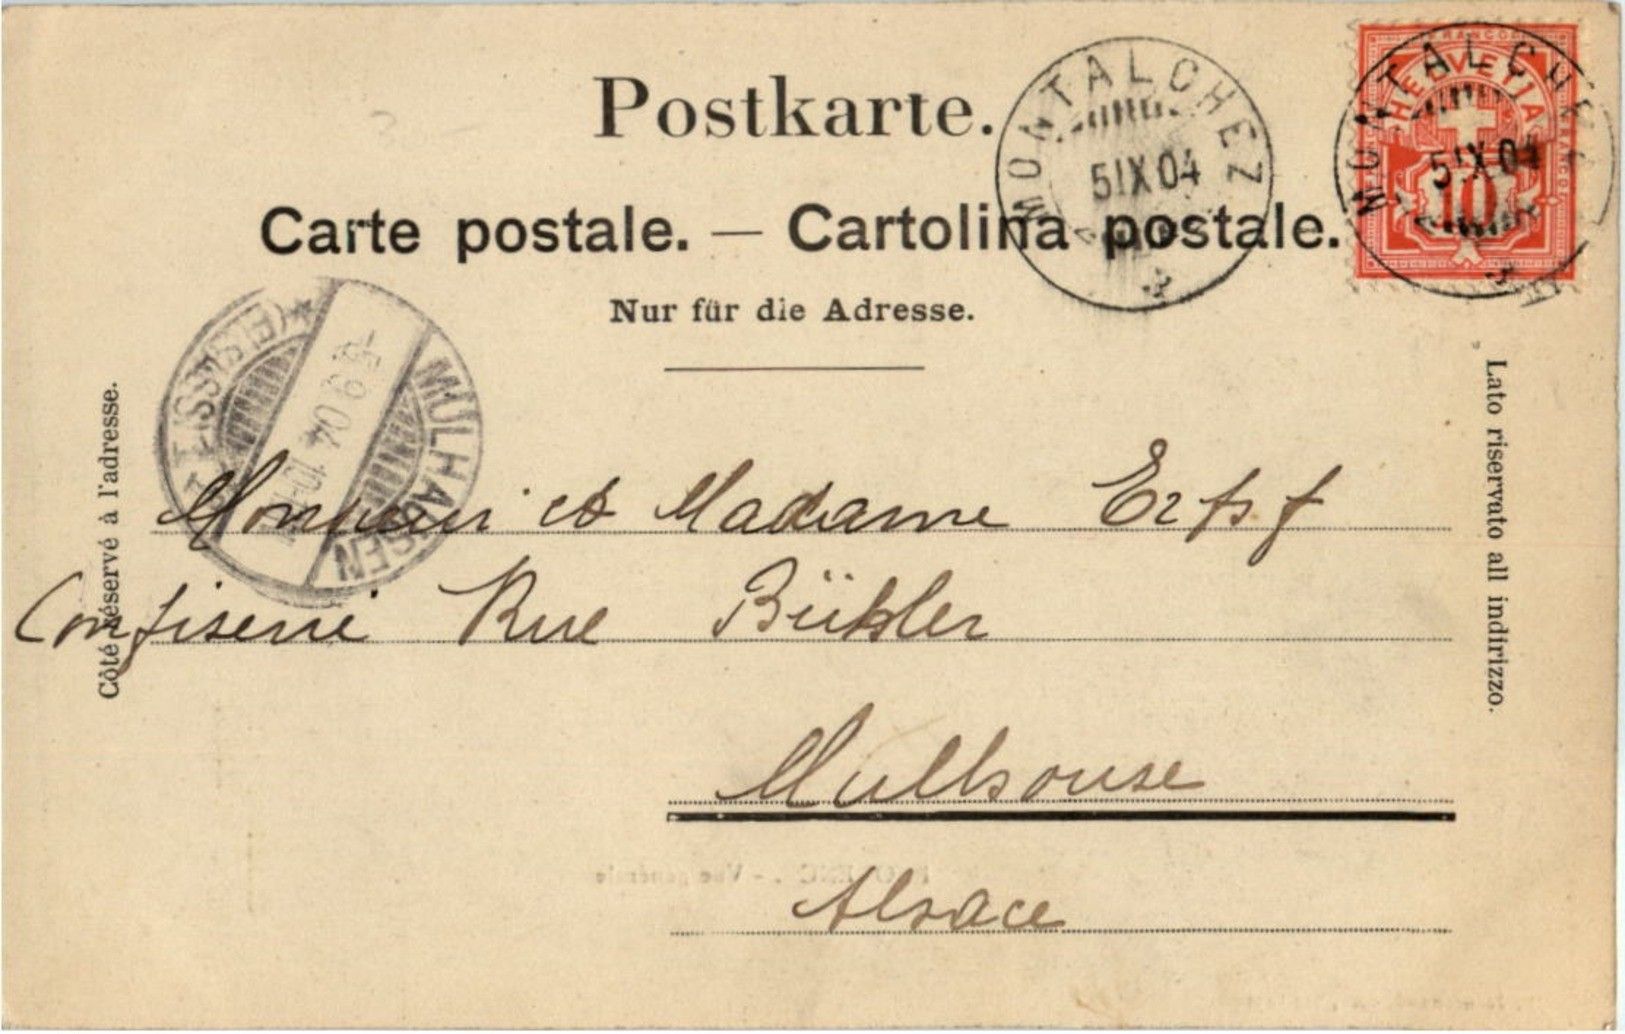 Postkarte.
Carte postale. — Cartolina postale.
Nur für die Adresse.
MONTALCHEZ
5 IX 04
FRANCO
HELVETIA
MONTALCHEZ
5 IX 04
10
MÜLHAUSEN
6.9.04
(ELSASS)
Côté réservé à l'adresse.
Lato riservato all indirizzo.
Monsieur et Madame Erpf
Confiserie Rue Bühler
Mullhouse
Alsace
- Vue générale